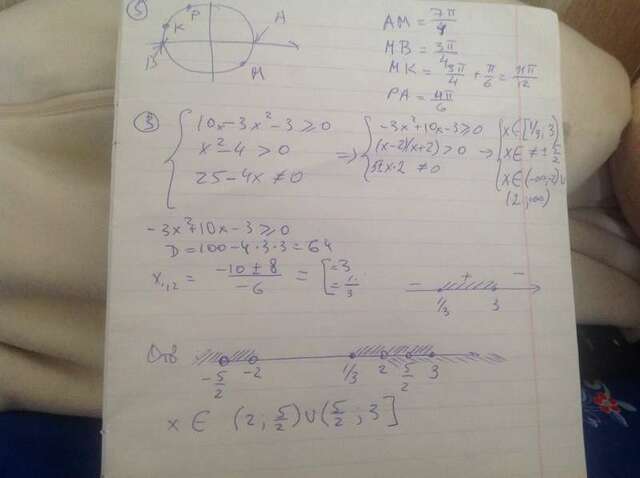 5
P
K
A
B
M
AM = 7π/4
MB = 3π/4
MK = 3π/4 + π/6 = 11π/12
PA = 4π/6
3
{ 10x - 3x² - 3 ≥ 0
x² - 4 > 0
25 - 4x ≠ 0
⇒ { -3x² + 10x - 3 ≥ 0
(x-2)(x+2) > 0
x·2 ≠ 0
→ { x ∈ [1/3; 3)
x ∈ ≠ ± 5/2
x ∈ (-∞; -2) ∪
(2; ∞)
-3x² + 10x - 3 ≥ 0
D = 100 - 4·3·3 = 64
x₁,₂ = (-10 ± 8)/(-6) = [ = 3
= 1/3
- + -
1/3 3
Отв
-5/2 -2 1/3 2 5/2 3
x ∈ (2; 5/2) ∪ (5/2; 3]